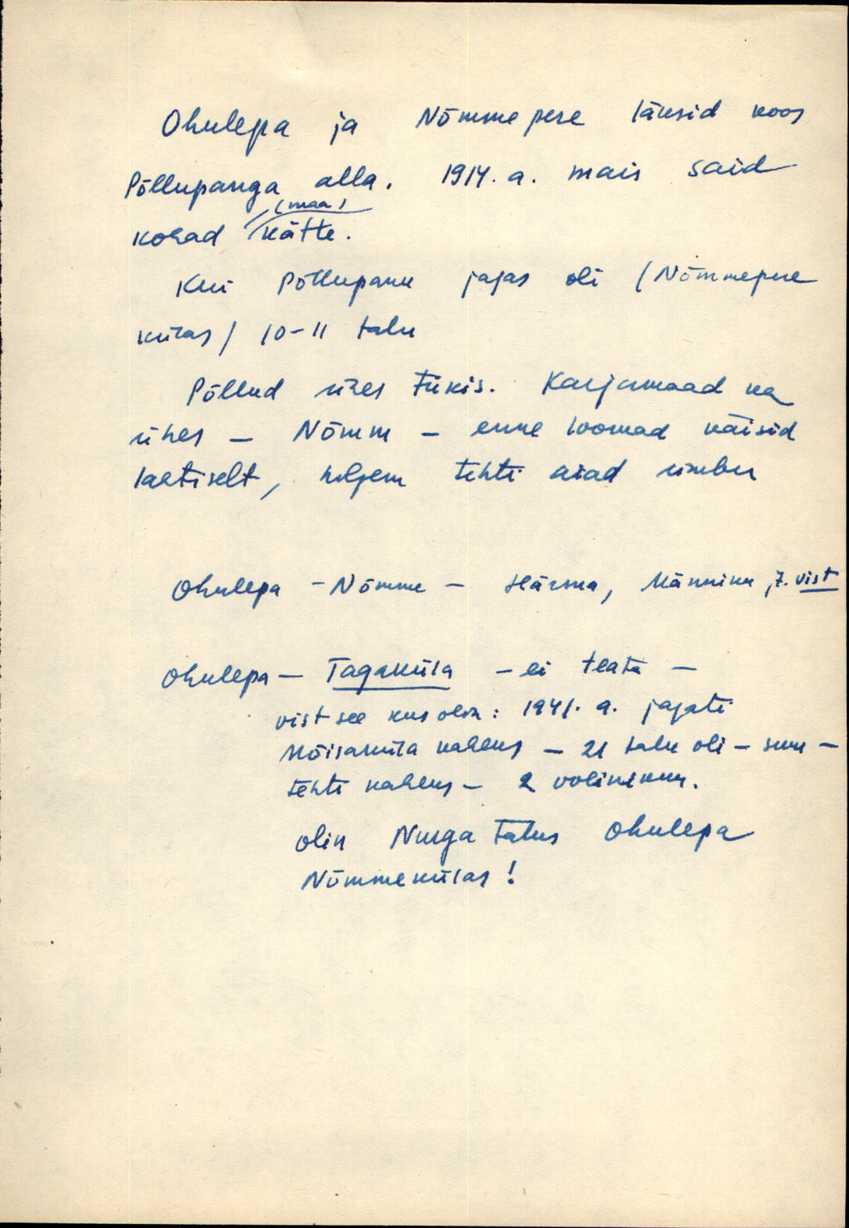 Ohulepa ja Nõmmepere läksid koos
Põllupanga alla. 1914. a. mais said
(maa)
kohad kätte.
Kui Põllupank jagas oli (Nõmmepere
külas) 10-11 talu
Põllud ühes tükis. Karjamaad ka
ühes - Nõmm - enne loomad käisid
lahtiselt, hiljem tehti aiad ümber
Ohulepa - Nõmme - Härma, Männiku, 7. vist
Ohulepa - Tagaküla - ei teata -
vist see kus olin: 1941. a. jagati
Mõisaküla kaheks - 21 talu oli - suur -
tehti kaheks - 2 volinikku.
olin Nurga talus Ohulepa
Nõmmekülas!